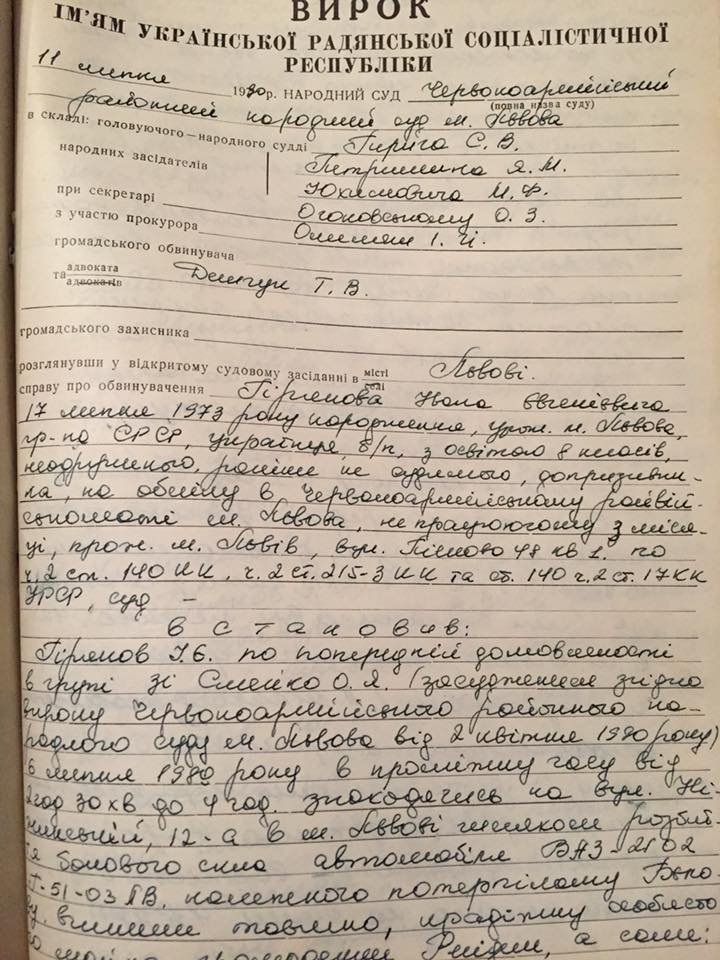 ВИРОК
ІМ'ЯМ УКРАЇНСЬКОЇ РАДЯНСЬКОЇ СОЦІАЛІСТИЧНОЇ
РЕСПУБЛІКИ
11 липня 1990 р. НАРОДНИЙ СУД Червоноармійський
(повна назва суду)
районний народний суд м. Львова
в складі: головуючого — народного судді Гирича С. В.
народних засідателів Петришина Я. М.
Юхимовича М. Ф.
при секретарі Огоновському О. З.
з участю прокурора І.
громадського обвинувача
та адвоката Т. В.
адвокатів
громадського захисника
розглянувши у відкритому судовому засіданні в місті Львові.
селі
справу про обвинувачення
17 липня 1973 року народження, урож. м. Львова,
гр-на СРСР, українця, б/п, з освітою 8 класів,
неодруженого, раніше не судимого, допризивни-
ка, на обліку в Червоноармійському райвій-
ськоматі м. Львова, не працюючого 3 міся-
ці, прож. м. Львів, вул. 48 кв 1. по
ч. 2 ст. 140 КК, ч. 2 ст. 215-3 КК та ст. 140 ч. 2 ст. 17 КК
УРСР, суд —
встановив:
по попередній домовленості
в групі зі О. Я. (засудженим згідно
вироку Червоноармійського районного на-
родного суду м. Львова від 2 квітня 1990 року)
6 липня 1989 року в проміжку часу від
2 год 30 хв до 4 год. знаходячись на вул.
12-а в м. Львові шляхом розбит-
тя бокового скла автомобіля ВАЗ-2102
51-03 належного потерпілому
вчинив таємно, крадіжку особисто-
го майна громадян а саме: